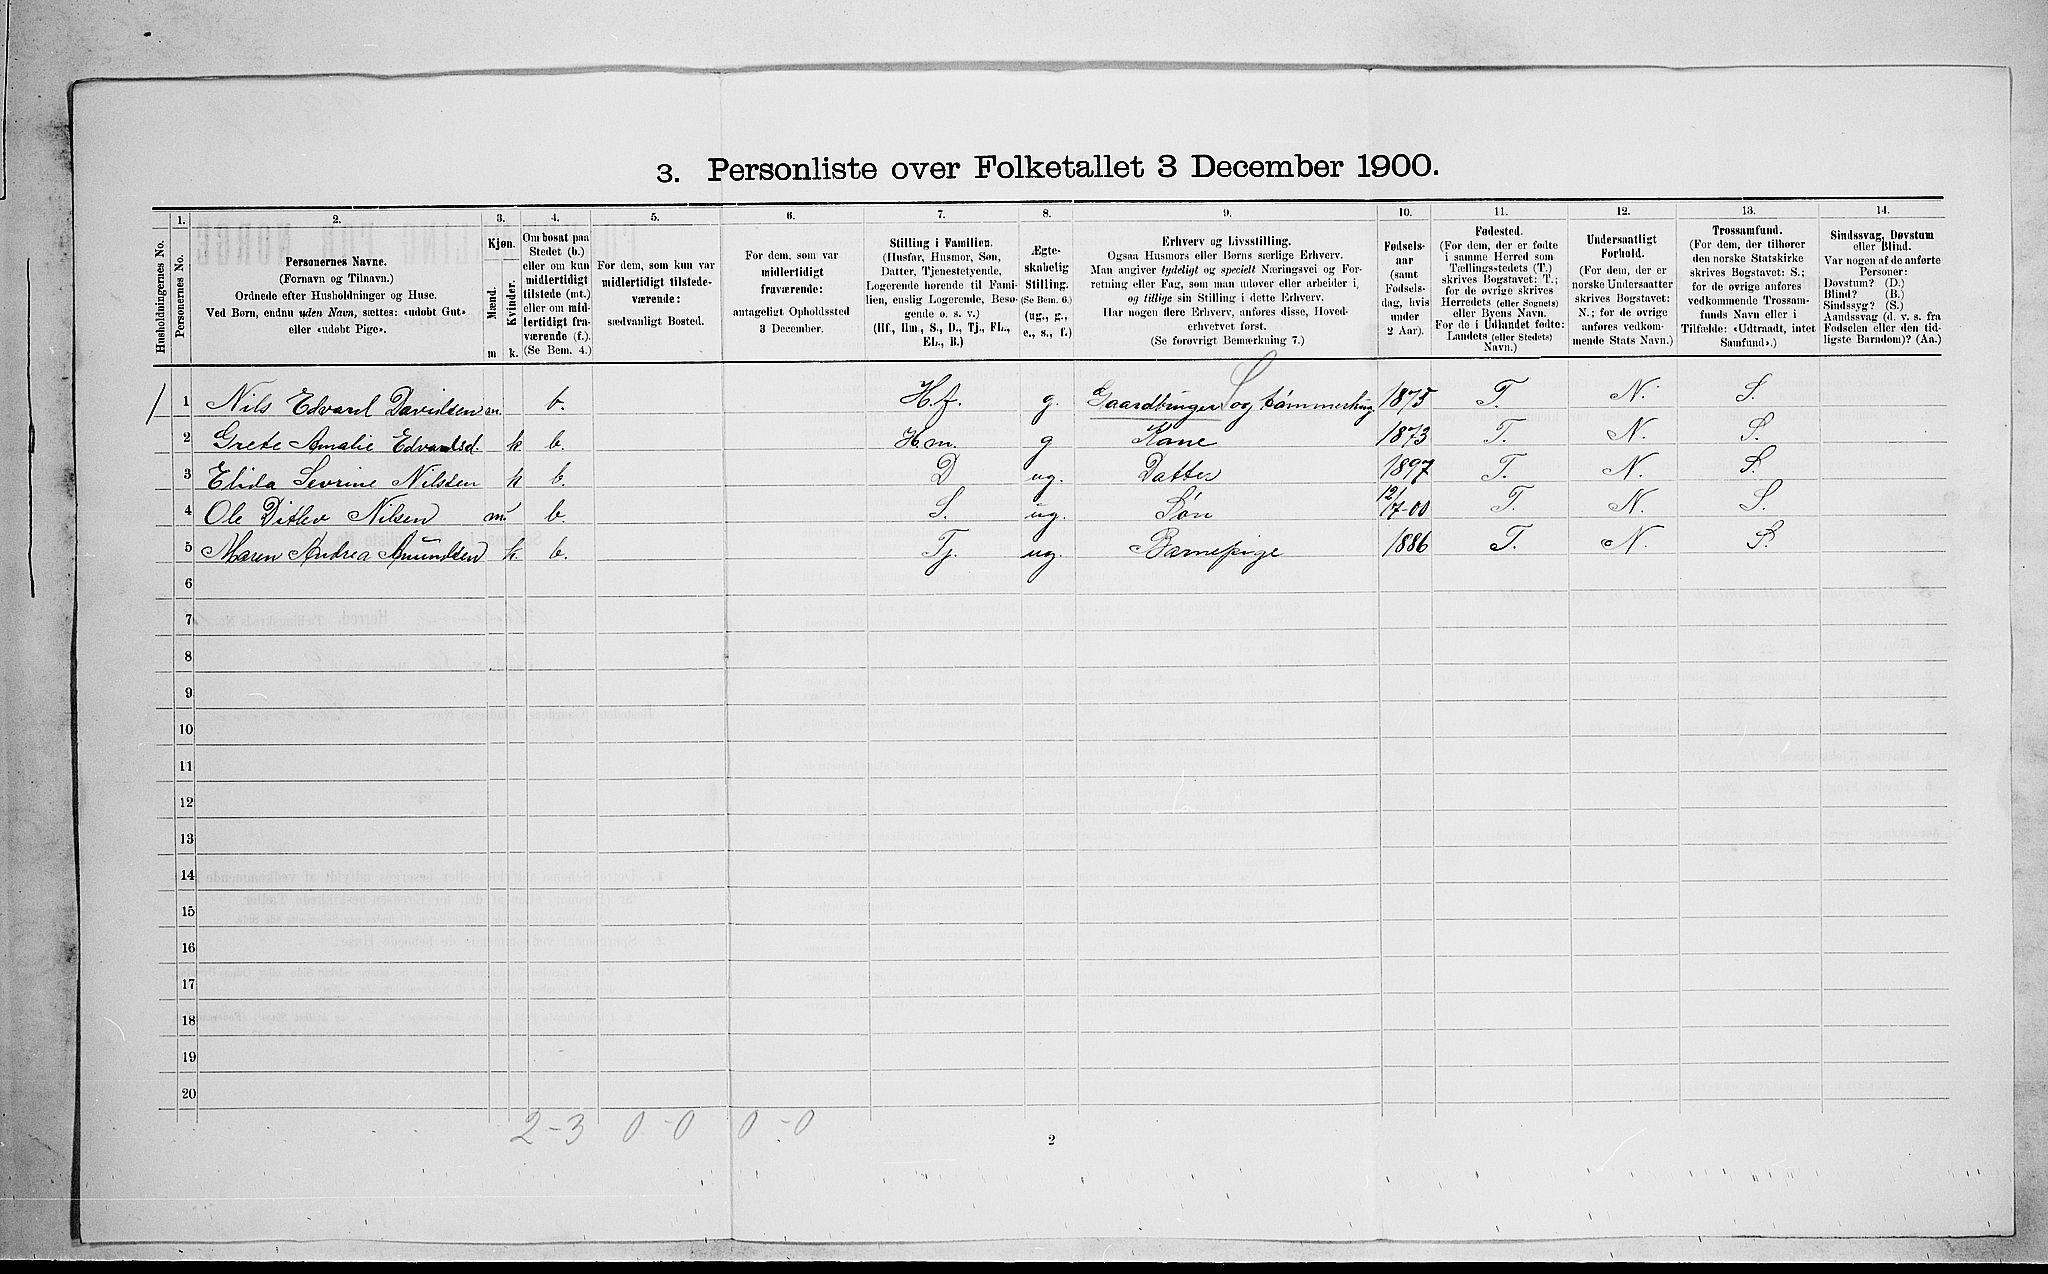 3. Personliste over Folketallet 3 December 1900.
1. 2. 3. 4. 5. 6. 7. 8. 9. 10. 11. 12. 13. 14.
Husholdningernes No.
Personernes No.
Personernes Navne.
(Fornavn og Tilnavn.)
Ordnede efter Husholdninger og Huse.
Ved Børn, endnu uden Navn, sættes: «udøbt Gut»
eller «udøbt Pige».
Kjøn.
Mænd.
Kvinder.
m k.
Om bosat paa
Stedet (b.)
eller om kun
midlertidigt
tilstede (mt.)
eller om mid-
lertidigt fra-
værende (f.).
(Se Bem. 4.)
For dem, som kun var
midlertidigt tilstede-
værende:
sædvanligt Bosted.
For dem, som var
midlertidigt
fraværende:
antageligt Opholdssted
3 December.
Stilling i Familien.
(Husfar, Husmor, Søn,
Datter, Tjenestetyende,
Logerende hørende til Fami-
lien, enslig Logerende, Besø-
gende o. s. v.)
(Hf., Hm., S., D., Tj., FL.,
EL., B.)
Ægte-
skabelig
Stilling.
(Se Bem. 6.)
(ug., g.,
e., s., f.)
Erhverv og Livsstilling.
Ogsaa Husmors eller Børns særlige Erhverv.
Man angiver tydeligt og specielt Næringsvei og For-
retning eller Fag, som man udøver eller arbeider i,
og tillige sin Stilling i dette Erhverv.
Har nogen flere Erhverv, anføres disse, Hoved-
erhvervet først.
(Se forøvrigt Bemærkning 7.)
Fødsels-
aar
(samt
Fødsels-
dag, hvis
under
2 Aar).
Fødested.
(For dem, der er fødte
i samme Herred som
Tællingsstedets (T.)
skrives Bogstavet: T.;
for de øvrige skrives
Herredets (eller Sognets)
eller Byens Navn.
For de i Udlandet fødte:
Landets (eller Stedets)
Navn.)
Undersaatligt
Forhold.
(For dem, der er
norske Undersaatter
skrives Bogstavet:
N.; for de øvrige
anføres vedkom-
mende Stats Navn.)
Trossamfund.
(For dem, der tilhører
den norske Statskirke
skrives Bogstavet: S.;
for de øvrige anføres
vedkommende Trossam-
funds Navn eller i
Tilfælde: «Udtraadt, intet
Samfund».)
Sindssvag, Døvstum
eller Blind.
Var nogen af de anførte
Personer:
Døvstum? (D.)
Blind? (B.)
Sindssyg? (S.)
Aandssvag (d. v. s. fra
Fødselen eller den tid-
ligste Barndom)? (Aa.)
1 Nils Edvard Davidsen m. b. H.f. g. Gaardbruger og tømmerhug. 1875 T. N. S.
2 Grete Amalie Edvardsd. k b. Hm. g Kone 1873 T. N. S.
3 Elida Sevrine Nilsen k b. D ug. Datter 1897 T. N. S.
4 Ole Ditlev Nilsen m b. S. ug. Søn 12/7-00 T. N. S.
5 Maren Andrea Amundsen k b. Tj. ug. Barnepige 1886 T. N. S.
6
7
8
9
10
11
12
13
14
15
16
17
18
19
20
2-3 0-0 0-0
2